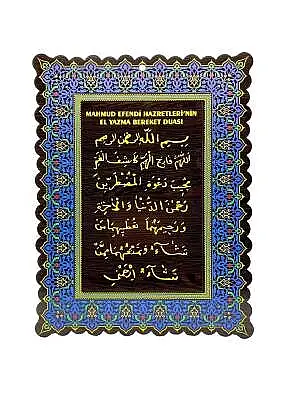 MAHMUD EFENDİ HAZRETLERİ'NİN
EL YAZMA BEREKET DUASI
بسم الله الرحمن الرحيم
اللهم فارج الهم كاشف الغم
مجيب دعوة المضطرين
رحمن الدنيا والآخرة
ورحيمهما
تشاء وتمنعهما ممن
تشاء